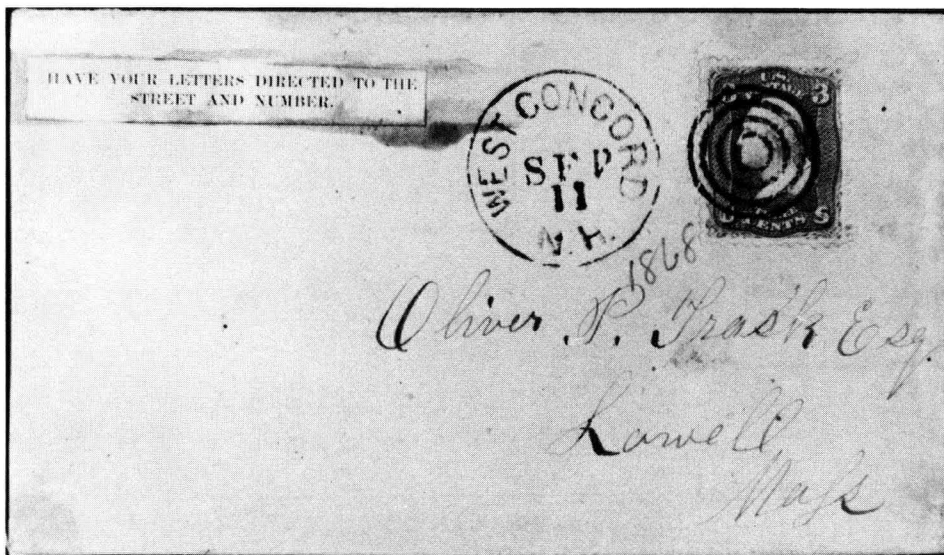 HAVE YOUR LETTERS DIRECTED TO THE
STREET AND NUMBER.
WEST CONCORD
SEP
11
N.H.
1868
U.S.
3 3
CENTS
Oliver P. Trask Esq.
Lowell
Mass